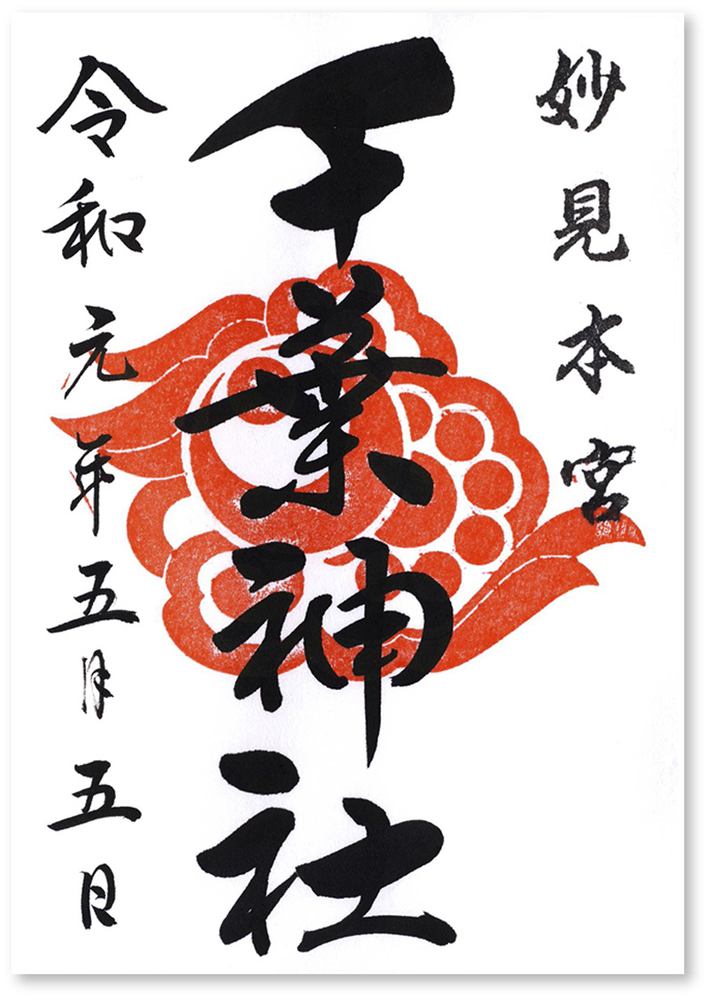 妙見本宮
千葉神社
令和元年五月五日